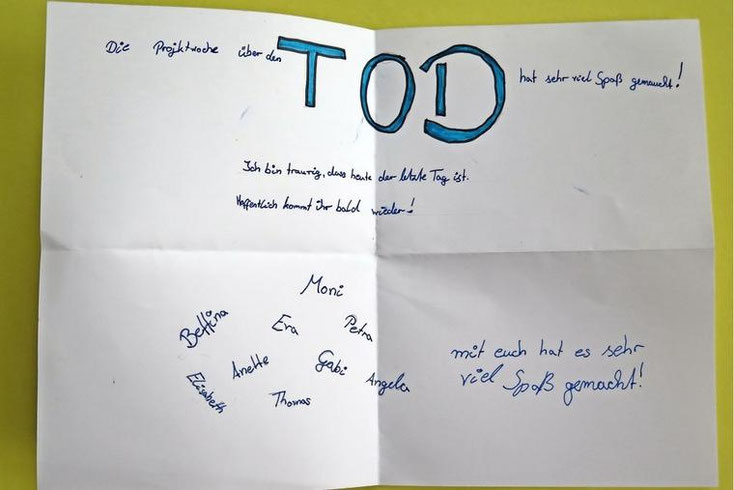 Die Projktwoche über den TOD hat sehr viel Spaß gemaucht!
Ich bin traurig, dass heute der letzte Tag ist.
Hoffentlich kommt ihr bald wieder!
Moni
Bettina
Eva
Petra
Anette
Gabi
Elisabeth
Thomas
Angela
mit euch hat es sehr
viel Spaß gemacht!